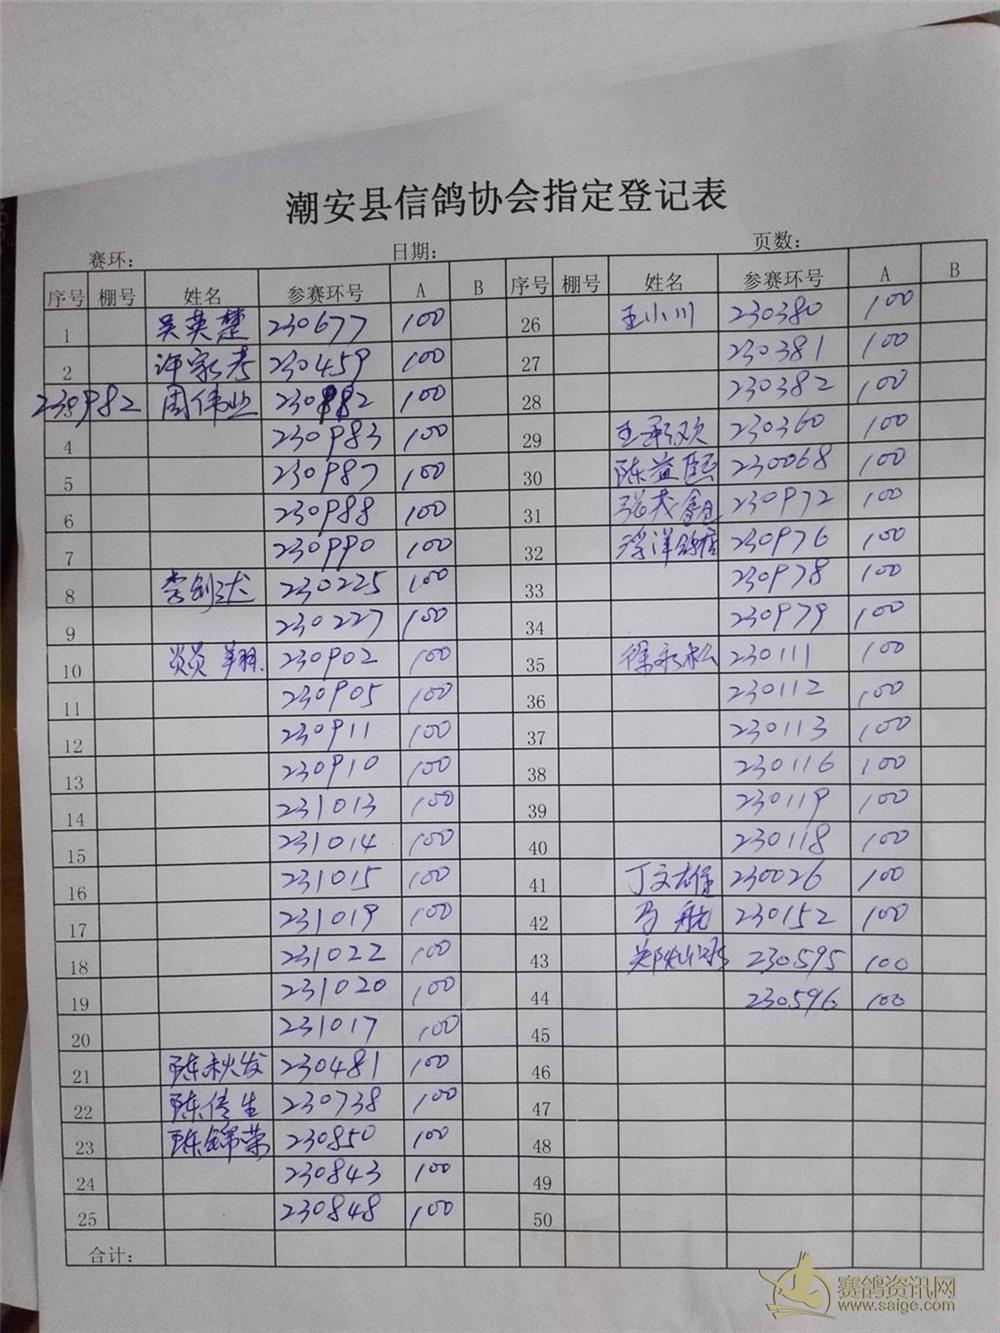 潮安县信鸽协会指定登记表
赛环： 日期： 页数：
序号 棚号 姓名 参赛环号 A B 序号 棚号 姓名 参赛环号 A B
1 吴英楚 230677 100 26 王小川 230380 100
2 许家孝 230459 100 27 230381 100
230982 周伟业 230982 100 28 230382 100
4 230983 100 29 王承欢 230360 100
5 230987 100 30 陈益熙 230068 100
6 230988 100 31 张茂 230972 100
7 230990 100 32 洋鸽店 230976 100
8 李创达 230225 100 33 230978 100
9 230227 100 34 230979 100
10 翔 230902 100 35 徐永松 230111 100
11 230905 100 36 230112 100
12 230911 100 37 230113 100
13 230910 100 38 230116 100
14 231013 100 39 230119 100
15 231014 100 40 230118 100
16 231015 100 41 丁文雄 230026 100
17 231019 100 42 马航 230152 100
18 231022 100 43 郑 230595 100
19 231020 100 44 230596 100
20 231017 100 45
21 陈秋发 230481 100 46
22 陈传生 230738 100 47
23 陈锦荣 230850 100 48
24 230843 100 49
25 230848 100 50
合计：
赛鸽资讯网
www.saige.com